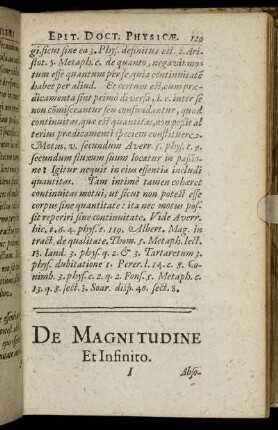 EPIT. DOCT. PHYSICÆ. 129
gi, sicut sine ea 3. Phys. definitus est. 2. Ari-
stot. 5. Metaph. c. de quanto, negavit mo-
tum esse quantum per se, quia continuitatē
habet per aliud. Et certum est, cum præ-
dicamenta sint primò diversa, i. e. inter se
non cōmisceantur seu confundantur, quod
continuitas, quæ est quantitas, non possit al-
terius prædicamenti speciem constituere. 2.
Motus. v. secundum Averr. 5. phys. t. 9.
secundum fluxum suum locatur in passio-
ne: Igitur nequit in ejus essentia includi
quantitas. Tam intimè tamen cohæret
continuitas motui, ut sicut non potest esse
corpus sine quantitate: ita nec motus pos-
sit reperiri sine continuitate. Vide Averr.
hic, t. 6. 4. phys. t. 119. & Albert. Mag. in
tract. de qualitate. Thom. 5. Metaph. lect.
13. Iand. 3. phys. q. 2. & 3. Tartaretum 3.
phys. dubitatione 1. Perer. l. 14. c. 8. Co-
nimb. 3. phys. c. 2. q. 2. Fons. 5. Metaph. c.
13. q. 8. sect. 3. Soar. disp. 40. sect. 8.
DE MAGNITUDINE
Et Infinito.
I Abso-